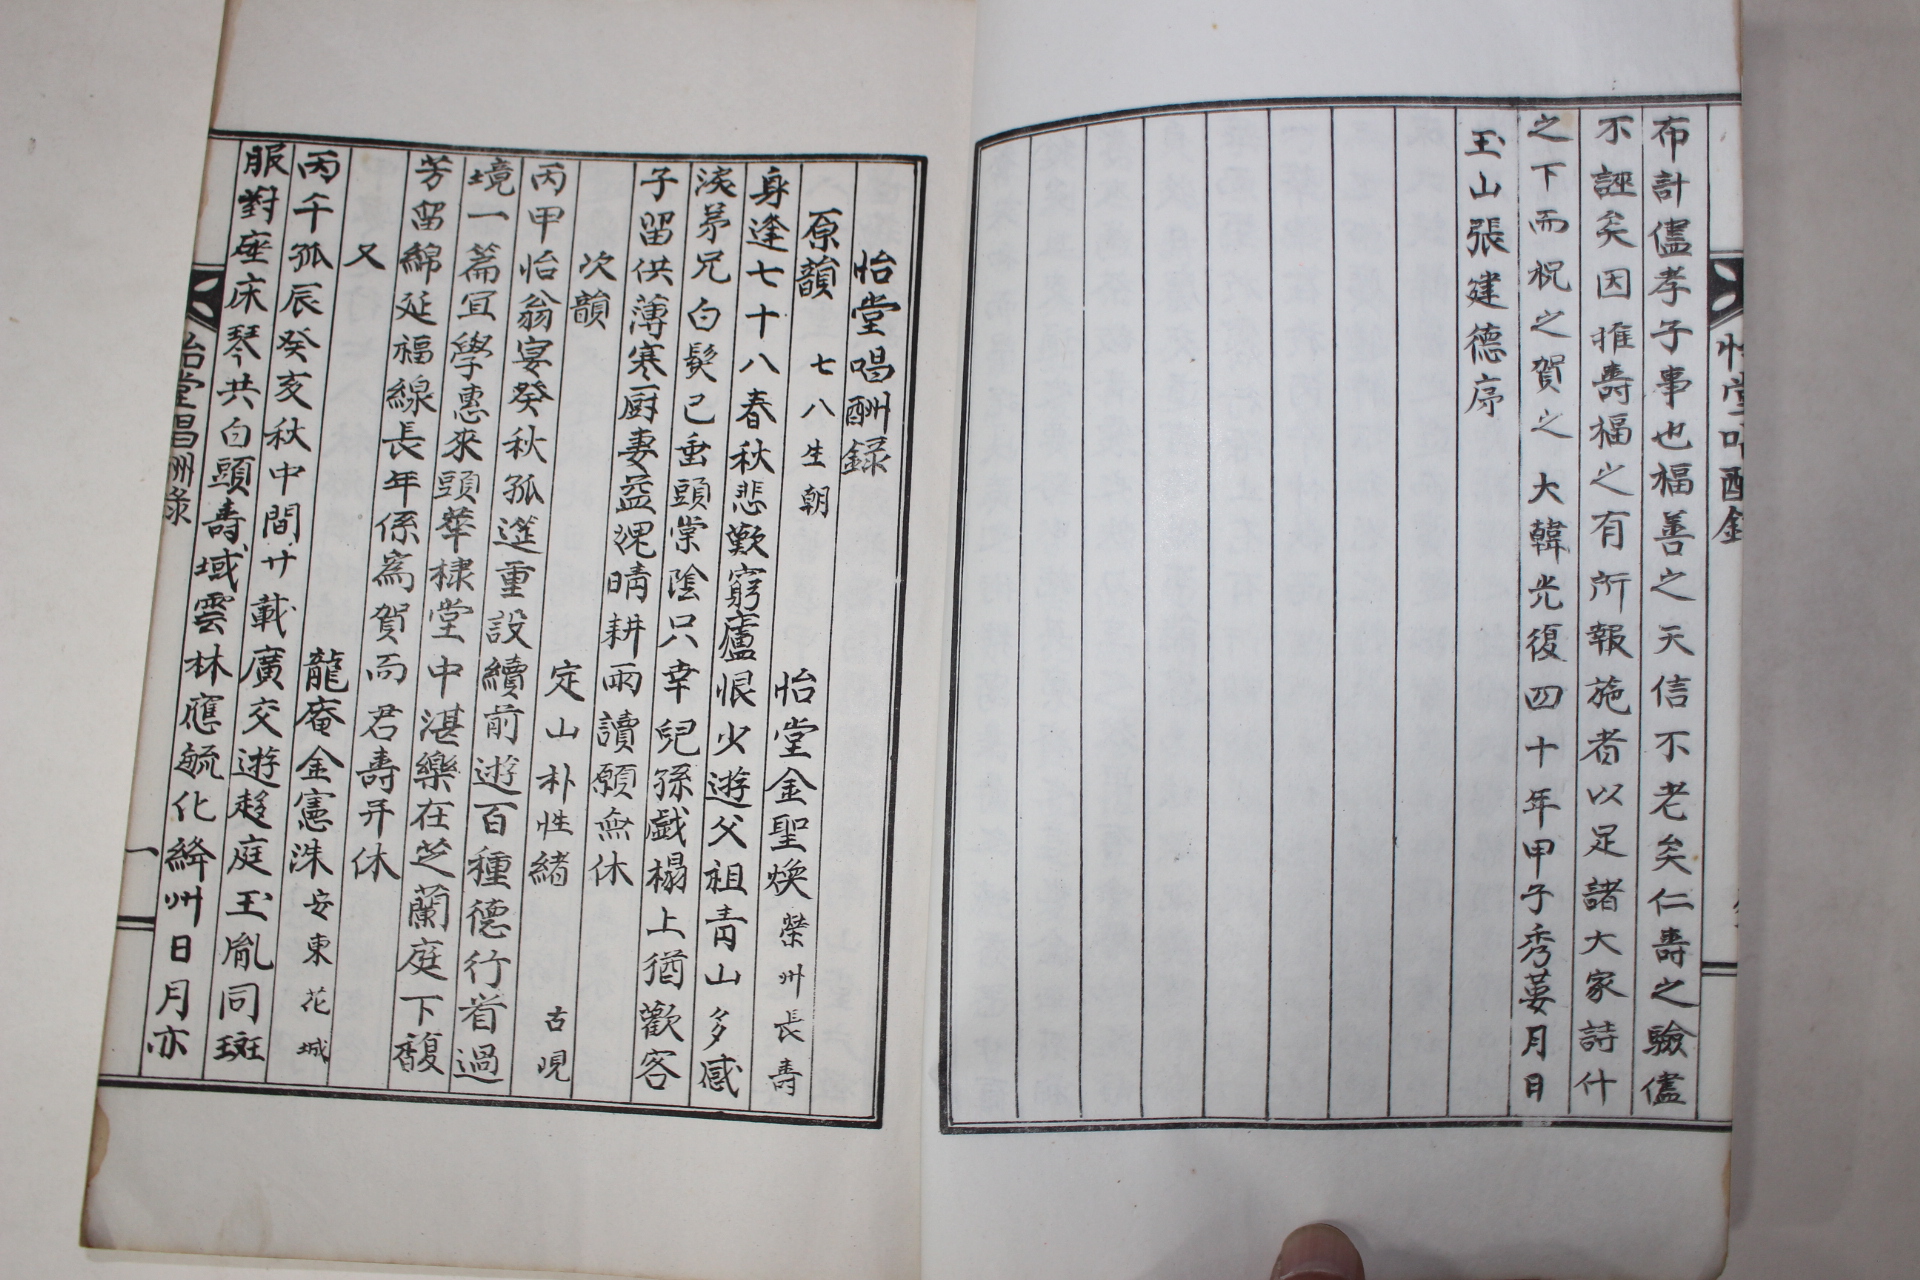 布計儘孝子事也福善之天信不老矣仁壽之驗儘
不誣矣因推壽福之有所報施者以足諸大家詩什
之下而祝之賀之大韓光復四十年甲子秀葽月日
玉山張建德序
怡堂唱酬錄
原韻 七八生朝 怡堂金聖煥 榮州長壽
身逢七十八春秋悲歎窮廬恨少遊父祖靑山多感
淚弟兄白髮已垂頭棠陰只幸兒孫戱榻上猶歡客
子留供薄寒厨妻益溉晴耕雨讀願無休
次韻 定山朴性緖 古晛
丙甲怡翁宴癸秋孤筵重設續前遊百種德行省過
境一篇宜學惠來頭華棣堂中湛樂在芝蘭庭下馥
芳留綿延福線長年係爲賀而君壽幷休
又 龍庵金憲洙 安東花城
丙千孤辰癸亥秋中間廿載廣交遊趍庭玉胤同斑
服對座床琴共白頭壽域雲林應毓化絳州日月亦
怡堂唱酬錄 一